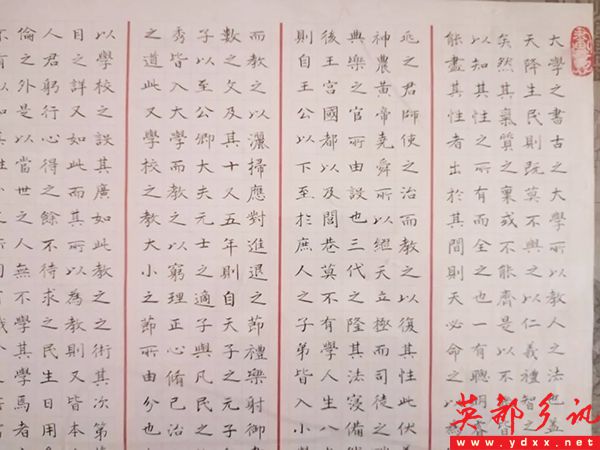 大學之書古之大學所以教人之法也蓋
天降生民則既莫不與之以仁義禮智之
矣然其氣質之稟或不能齊是以不能皆
以知其性之所有而全之也一有聰明睿
能盡其性者出於其間則天必命之以
兆之君師使之治而教之以復其性此伏羲
神農黃帝堯舜所以繼天立極而司徒之職
典樂之官所由設也三代之隆其法寖備然
後王宮國都以及閭巷莫不有學人生八
則自王公以下至於庶人之子弟皆入小學
而教之以灑掃應對進退之節禮樂射御
數之文及其十又五年則自天子之元子
子以至公卿大夫元士之適子與凡民之
秀皆入大學而教之以窮理正心脩己治
之道此又學校之教大小之節所由分也
以學校之設其廣如此教之之術其次第
目之詳又如此而其所以為教則又皆本
人君躬行心得之餘不待求之民生日用
倫之外是以當世之人無不學其學焉者
英都乡讯
www.ydxx.net